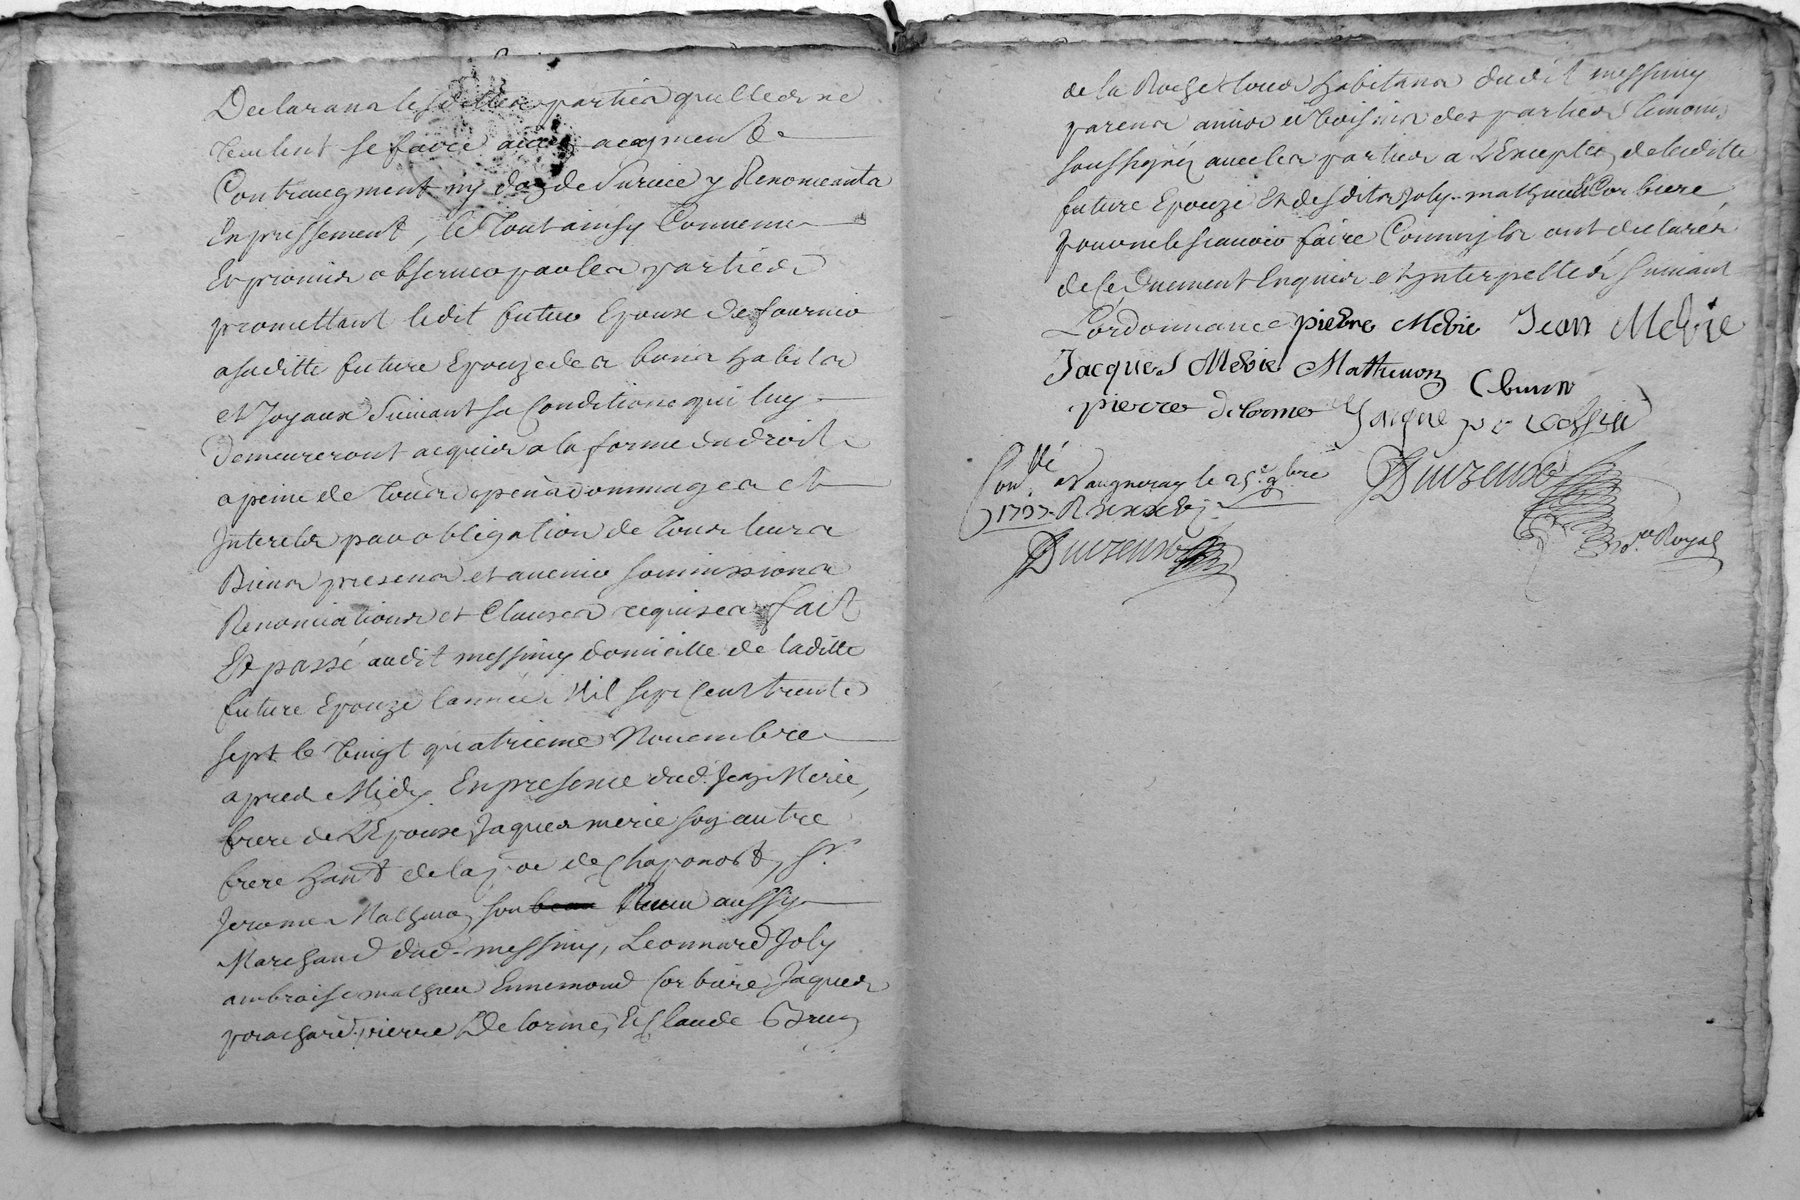 Declarans lesdittes parties quelles ne
veulent se faire aucun augment
Contraugment ny don de Survie y Renonceants
Expressement, le Tout ainsy Convenu
Et promis observer par les parties
promettant ledit futur Epoux de fournir
a saditte future Epouze des bons habits
et Joyaux Suivant sa Condition qui luy
demeureront acquis a la forme du droit
a peine de tous depens dommages et
Interets par obligation de tous leurs
Biens presens et avenir soumissions
Renonciations et Clauses requises fait
Et passé audit messimy domicille de laditte
future Epouze l'année Mil sept Cent trente
sept le vingt quatrieme Novembre
apres Midy En presence dud. Jean Merie,
frere de L'Epoux, Jaques merie son autre
frere hant de la pse de Chaponost, Sr.
Jerome Mathevon son aussy
Marchand dud. messimy, Leonnard Joly
ambroise mathieu Ennemond Corbiere Jaques
pierre Delorme, Et Claude Brun
de la Roche tous habitans dudit messimy
parens amis et voisins des parties temoins
soussignés avec les parties a L'Exception de laditte
future Epouze Et desdits Joly mathieu Corbiere
pour ne le scavoir faire Comm'ils ont declarés
de ce duement Enquis et Interpellés suivant
L'ordonnance pierre Merie Jean Merie
Jacques Merie Mathevon C brun
pierre delorme Jaque
Con.llé a Vaugneray le 25.e 9.bre
1737. R
not.re Royal